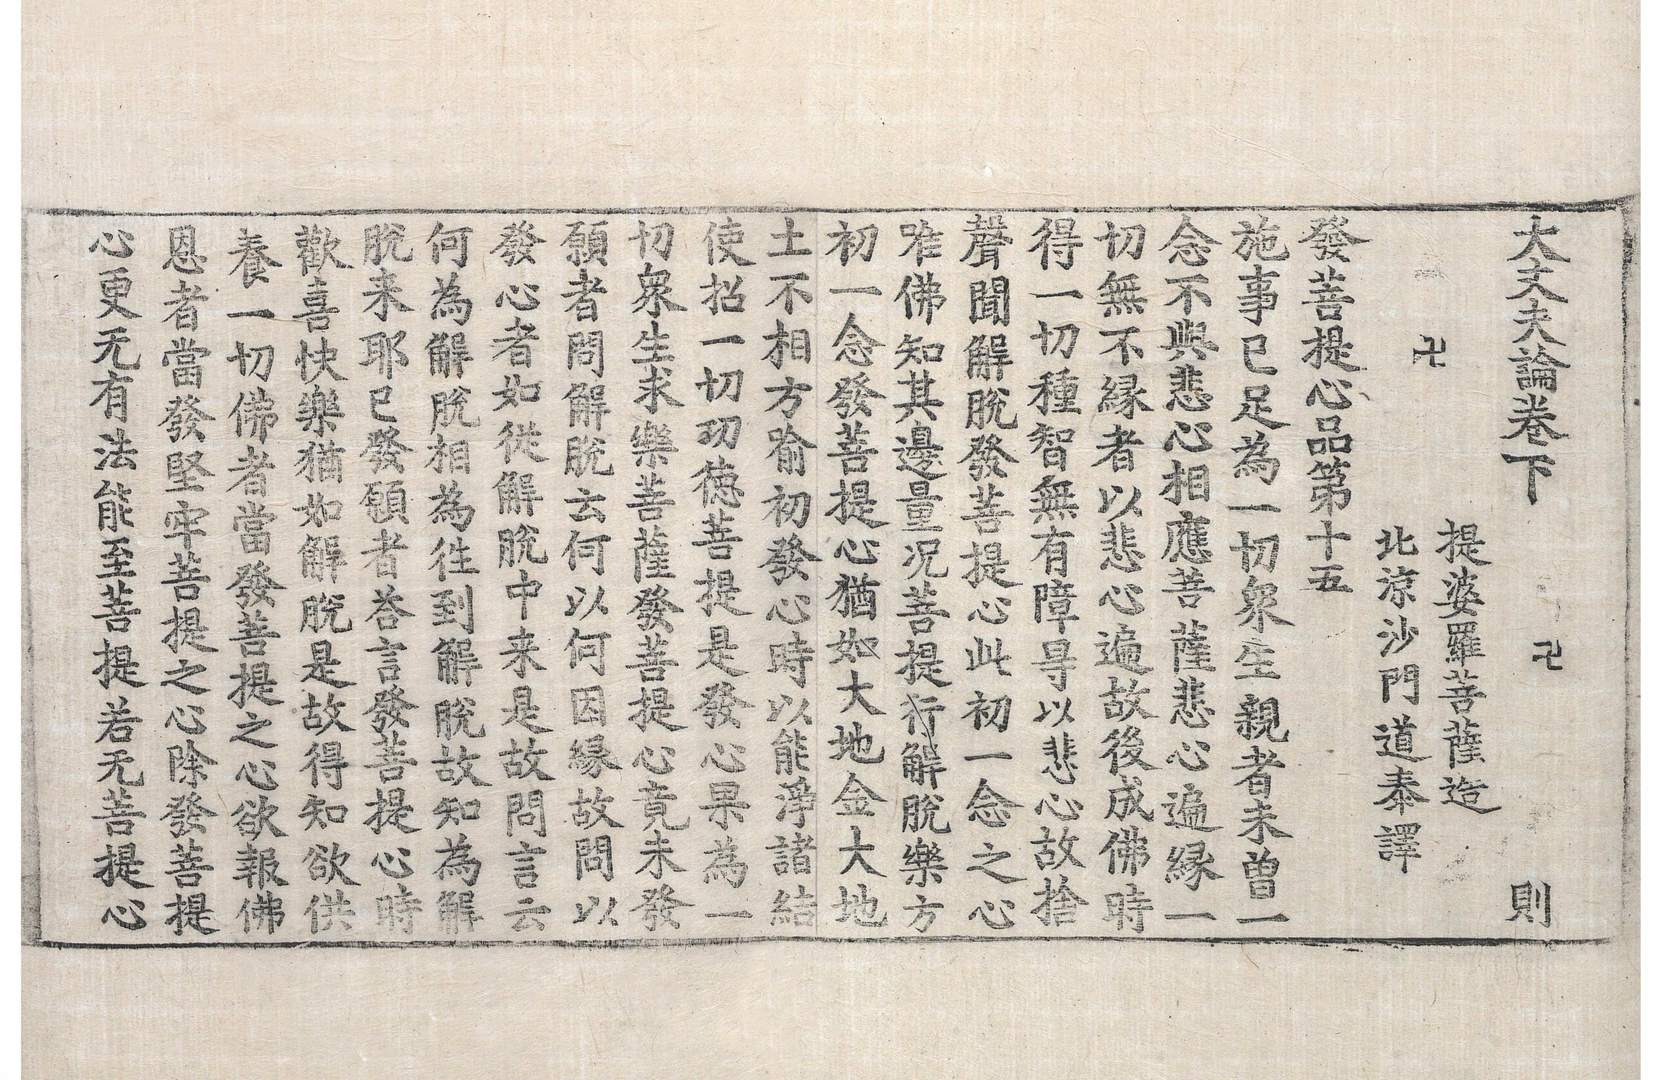 大丈夫論卷下 卍 則
提婆羅菩薩造
卍 北涼沙門道泰譯
發菩提心品第十五
施事已足為一切眾生親者未曾一
念不與悲心相應菩薩悲心遍緣一
切無不緣者以悲心遍故後成佛時
得一切種智無有障㝵以悲心故捨
聲聞解脫發菩提心此初一念之心
唯佛知其邊量况菩提行解脫樂方
初一念發菩提心猶如大地金大地
土不相方喻初發心時以能淨諸結
使招一切功德菩提是發心果為一
切眾生求樂菩薩發菩提心竟未發
願者問解脫云何以何因緣故問以
發心者如從解脫中来是故問言云
何為解脫相為往到解脫故知為解
脫来耶已發願者荅言發菩提心時
歡喜快樂猶如解脫是故得知欲供
養一切佛者當發菩提之心欲報佛
恩者當發堅牢菩提之心除發菩提
心更无有法能至菩提若无菩提心